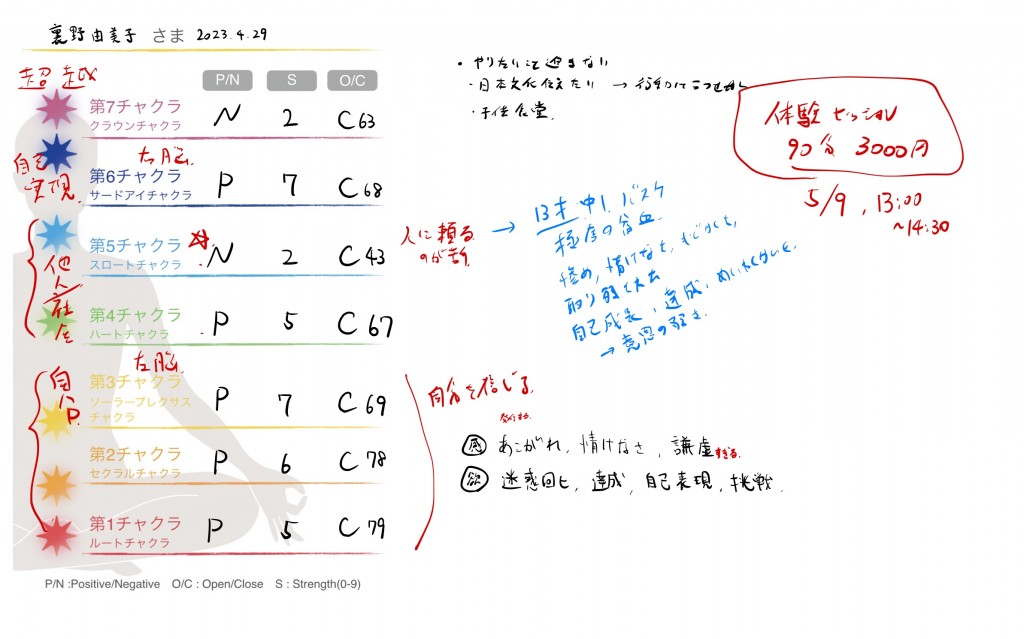 裏野由美子 さま 2023.4.29
超越
P/N S O/C
第7チャクラ
クラウンチャクラ
N 2 C63
自己実現
右脳
第6チャクラ
サードアイチャクラ
P 7 C68
他人/社会
第5チャクラ
スロートチャクラ
N 2 C43
人に頼る
のが苦
第4チャクラ
ハートチャクラ
P 5 C67
左脳
自
第3チャクラ
ソーラープレクサス
チャクラ
P 7 C69
第2チャクラ
セクラルチャクラ
P 6 C78
第1チャクラ
ルートチャクラ
P 5 C79
P/N :Positive/Negative O/C : Open/Close S : Strength(0-9)
・やりたいこと進まない
・日本文化伝えたり →
・子供食堂.
体験セッション
90分 3000円
5/9, 13:00
~14:30
→ 13才 中1 バスケ
極度の貧血
情けなさ,
自己成長, 達成,
→ 意思の弱さ.
自分を信じる.
感 あこがれ, 情けなさ, 謙虚すぎる.
欲 迷惑回ヒ, 達成, 自己表現, 挑戦.